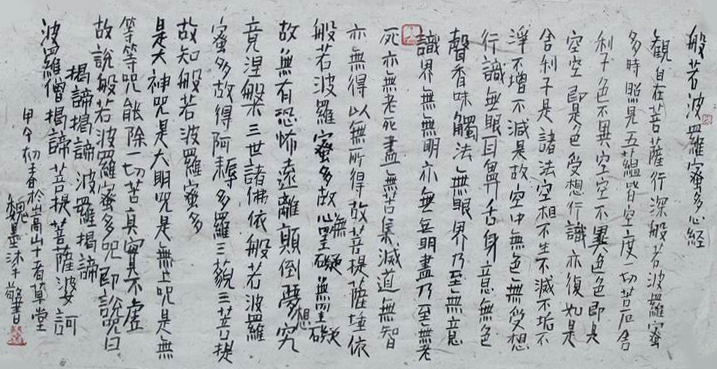 般若波羅蜜多心經
觀自在菩薩行深般若波羅蜜
多時照見五蘊皆空度一切苦厄舍
利子色不異空空不異色色即是
空空即是色受想行識亦復如是
舍利子是諸法空相不生不滅不垢不
淨不增不減是故空中無色無受想
行識無眼耳鼻舌身意無色
聲香味觸法無眼界乃至無意
識界無無明亦無無明盡乃至無老
死亦無老死盡無苦集滅道無智
亦無得以無所得故菩提薩埵依
般若波羅蜜多故心無罣礙無罣礙
故無有恐怖遠離顛倒夢想究
竟涅槃三世諸佛依般若波羅
蜜多故得阿耨多羅三藐三菩提
故知般若波羅蜜多
是大神咒是大明咒是無上咒是無
等等咒能除一切苦真實不虛
故說般若波羅蜜多咒即說咒曰
揭諦揭諦波羅揭諦
波羅僧揭諦菩提菩薩婆訶
甲午初春於嵩山十者草堂
魏墨沐敬書